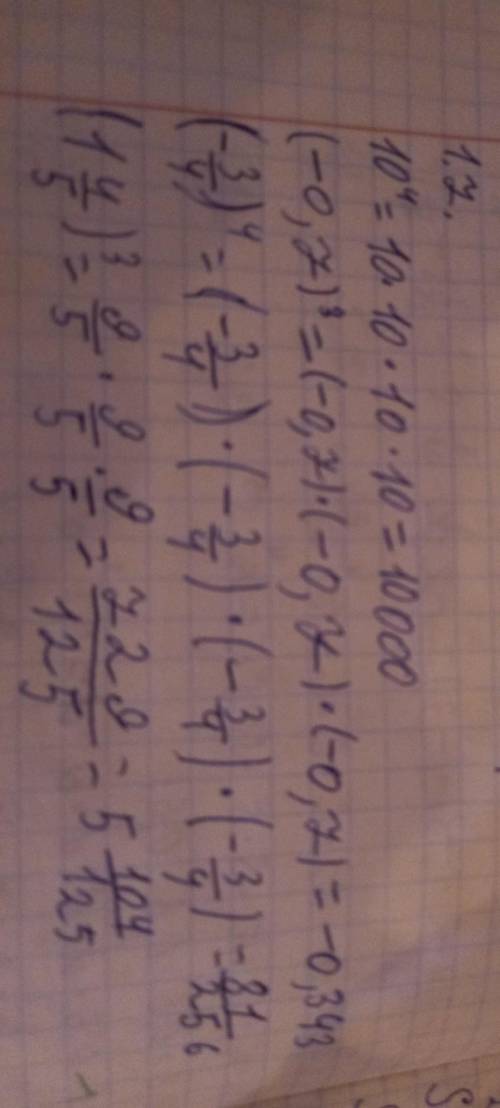 1.7.
10⁴ = 10·10·10·10 = 10000
(-0,7)³ = (-0,7)·(-0,7)·(-0,7) = -0,343
(-3/4)⁴ = (-3/4)·(-3/4)·(-3/4)·(-3/4) = 81/256
(1 4/5)³ = 9/5 · 9/5 · 9/5 = 729/125 = 5 104/125